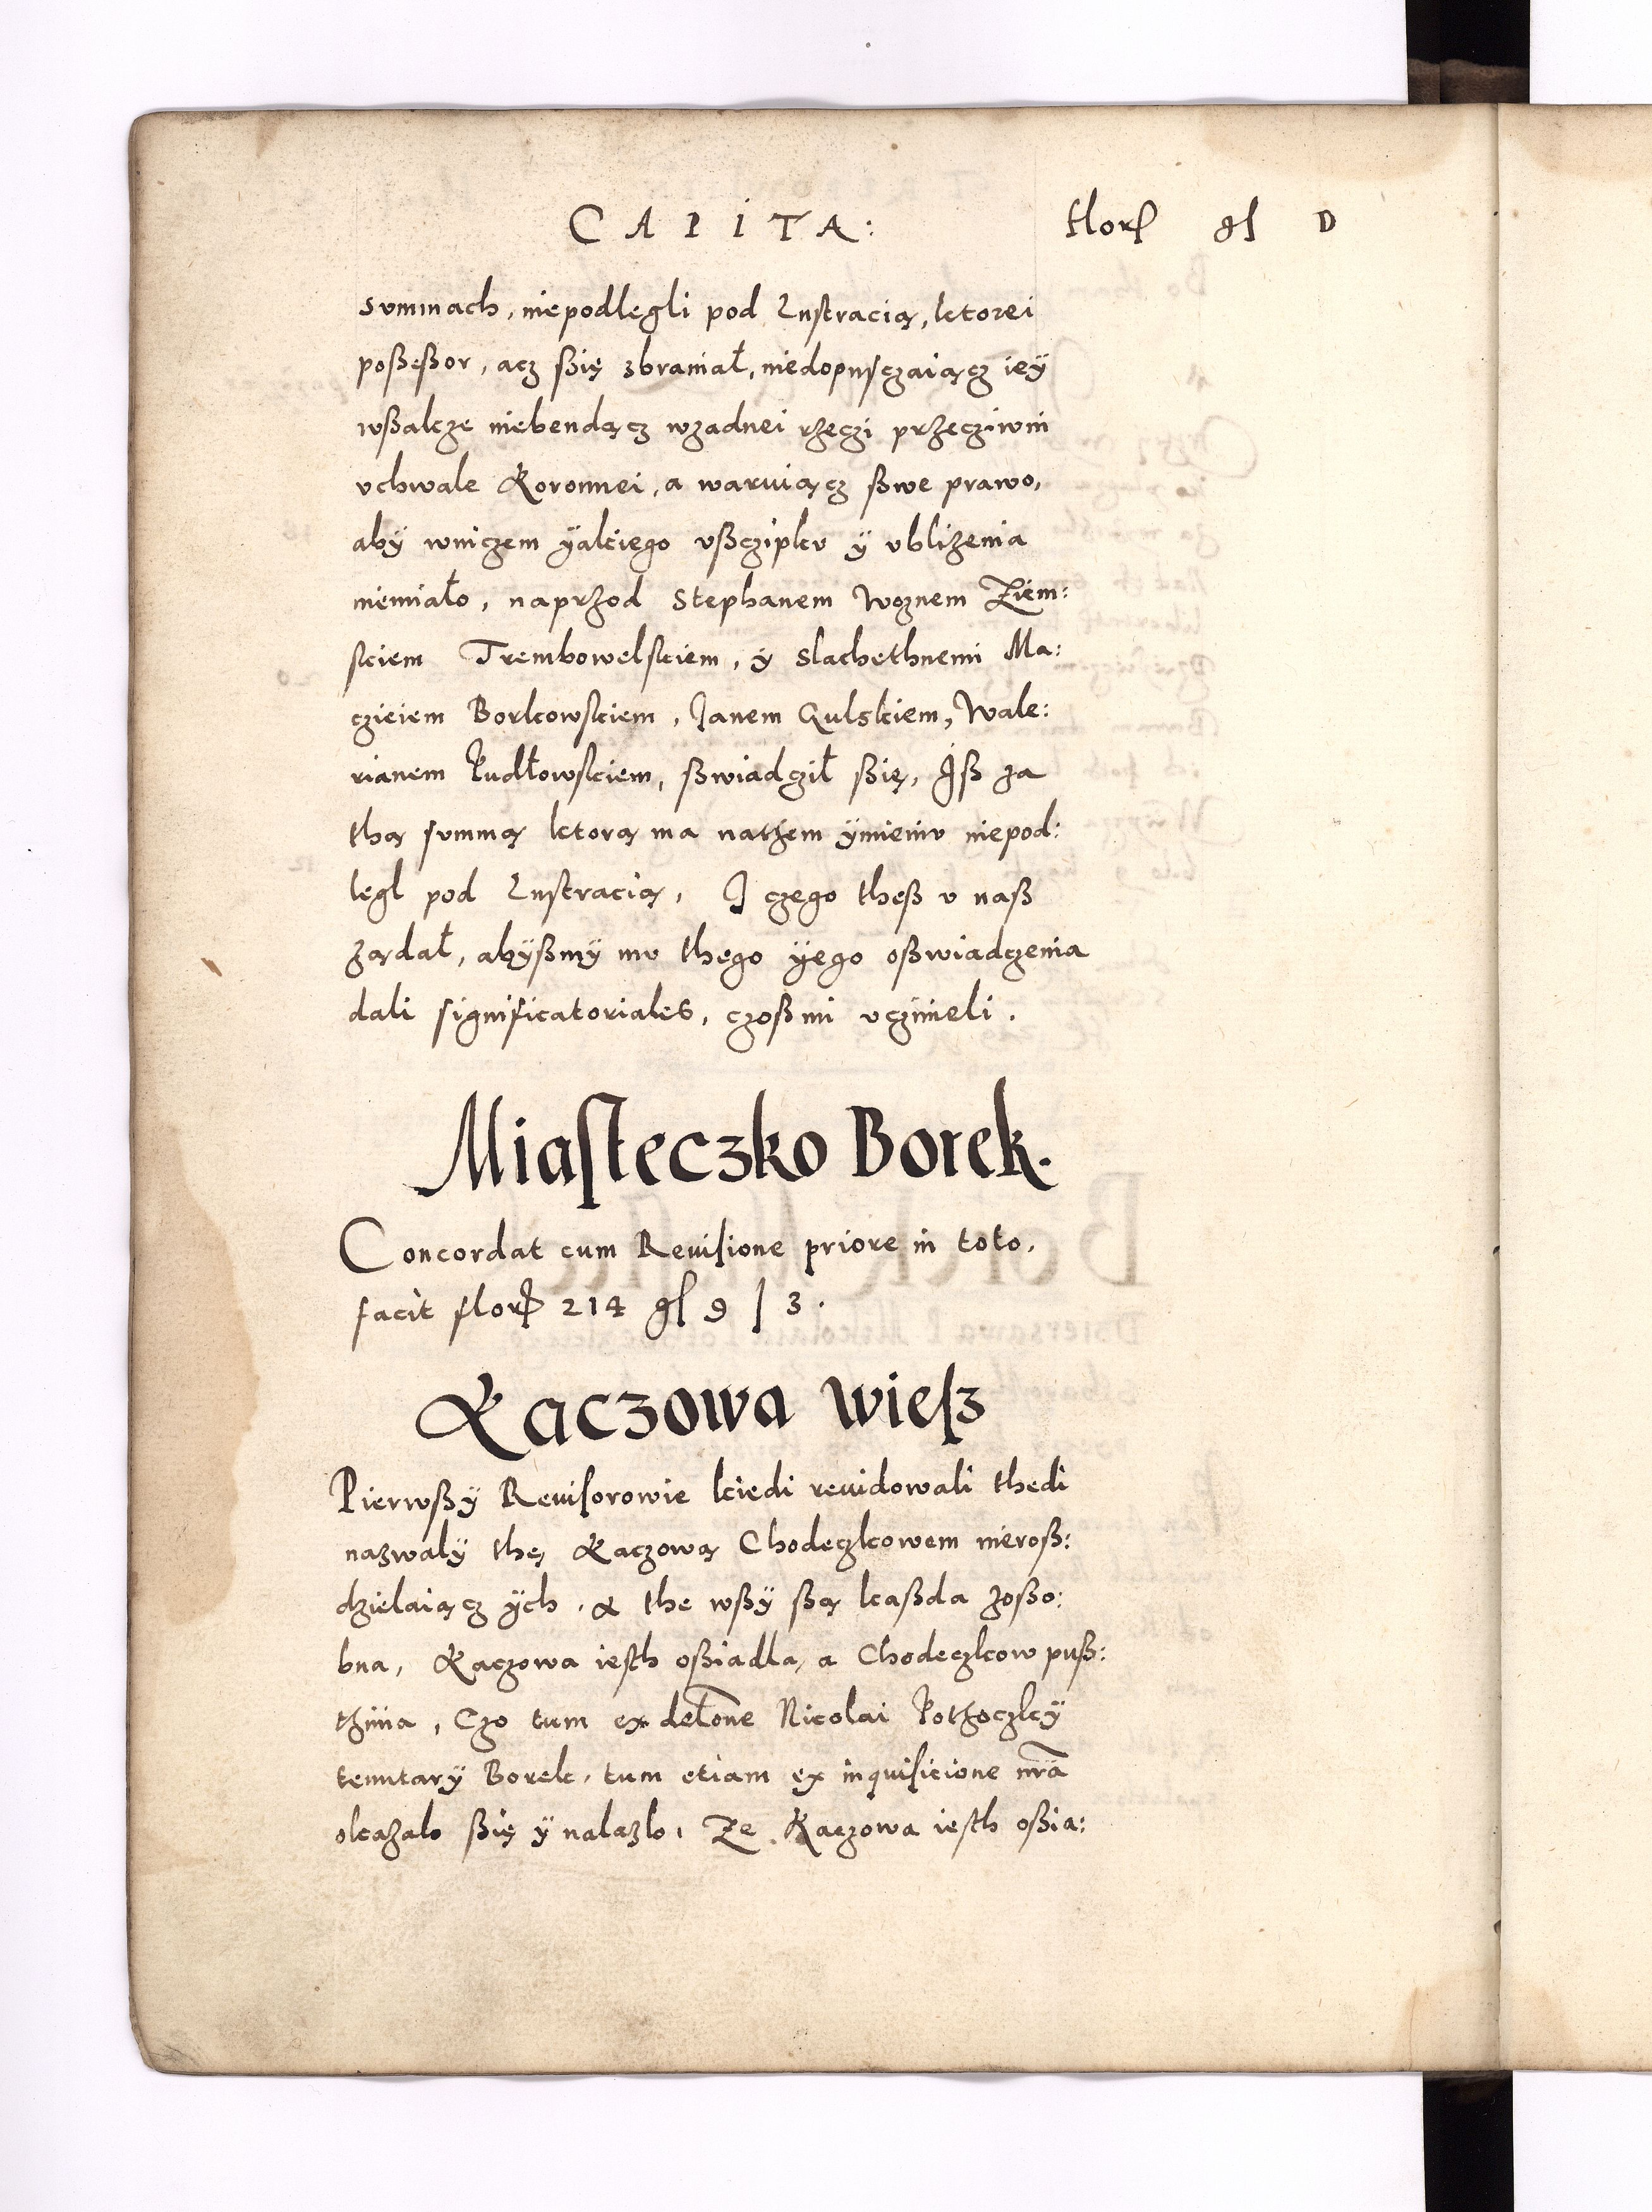 CAPITA: flor gl D
summach, niepodlegli pod Lustracią, ktorei
poßeßor, acz ßię zbraniał, niedopusczaiącz iey
wßakze niebendącz wzadnei rzeczi przecziwni
vchwale Koronnei, a waruiącz ßwe prawo,
aby wniczem ÿakiego vßczipku ÿ vblizenia
niemiało, naprzod Stephanem Woznem Ziem:
skiem Trembowelskiem, ÿ Slachethnemi Ma:
czieiem Borkowskiem, Janem Gulskiem, Wale:
rianem Pudłowskiem, ßwiadcził ßię, Iß za
thą summą ktorą ma nathem ÿmieniu niepod:
legl pod Lustracią, I czego theß v naß
ządał, abÿßmÿ mu thego ÿego oßwiadczenia
dali significatoriales, czoßmi vczinieli.
Miasteczko Borek.
Concordat cum Reuisione priore in toto,
facit flor 214 gl 9 / 3.
Kaczowa Wiesz
Pierwßÿ Reuisorowie kiedi reuidowali thedi
nazwalÿ thę Kaczową Chodeczkowem nieroß:
dzielaiącz ÿch, a the wßÿ ßą kaßda zoßo:
bna, Kaczowa iesth oßiadla, a Chodeczkow puß:
thinia, Czo tum ex delone Nicolai Pothoczkÿ
tenutarÿ Borek, tum etiam ex inquisicione nra
okazalo ßię ÿ nalazlo, Ze Kaczowa iesth oßia: